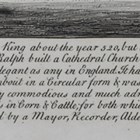 King about the year 520, but
Ralph built a Cathedral Church
elegant as any in England. It ha
about in a Circular form & was
y commodious and much adm
s in Corn & Cattle, for both whi
d by a Mayor, Recorder, Ald